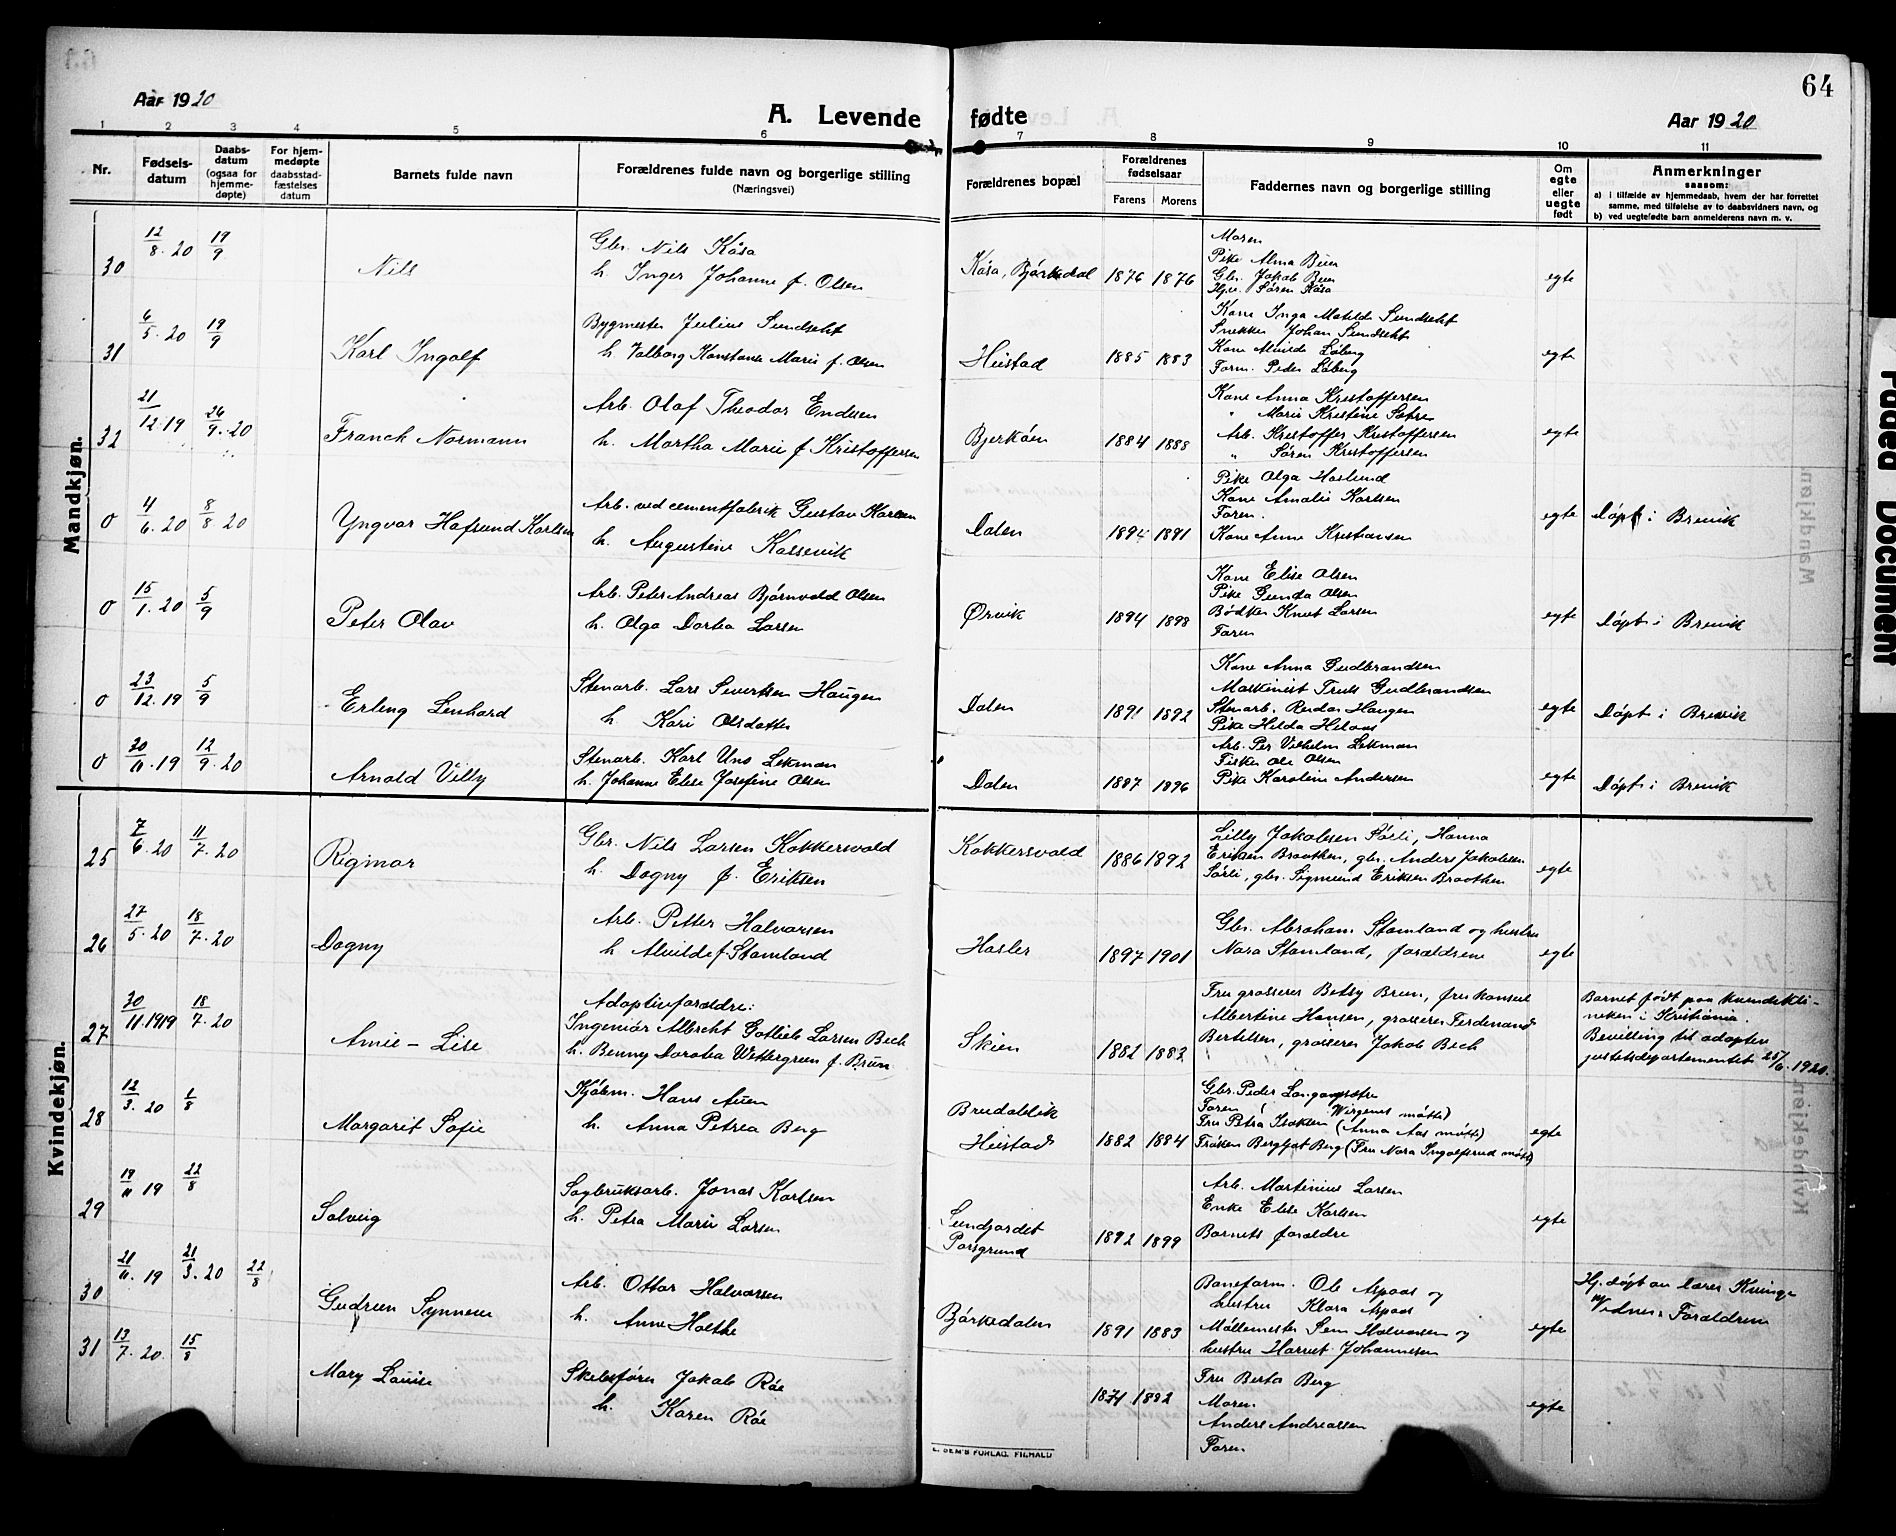 64
Aar 1920
A. Levende fødte
Aar 1920
1 2 3 4 5 6 7 8 9 10 11
Nr.
Fødsels-
datum
Daabs-
datum
(ogsaa for
hjemme-
døpte)
For hjem-
medøpte
daabsstad-
fæstelses
datum
Barnets fulde navn
Forældrenes fulde navn og borgerlige stilling
(Næringsvei)
Forældrenes bopæl
Forældrenes
fødselsaar
Farens Morens
Faddernes navn og borgerlige stilling
Om
egte
eller
uegte
født
Anmerkninger
saasom:
a) i tilfælde av hjemmedaab, hvem der har forrettet
samme, med tilføielse av to daabsvidners navn, og
b) ved uegtefødte barn anmelderens navn m. v.
Mandkjøn.
30 12/8. 20 19/9 Nils
Gbr. Nils Kåsa
h. Inger Johanne f. Olsen
Kåsa, Bjørkedal 1876 1876
Moren
Pike Alma Buer
Gbr. Jakob Buer
Hjv. Søren Kåsa
egte
31 6/5. 20 19/9 Karl Ingolf
Bygmester Julius Sundseht
h. Valborg Konstanse Marie f. Olsen
Heistad 1885 1883
Kone Inga Matilde Sundseht
Snekker Johan Sundseht
Kone Alvilde Løberg
Form. Peder Løberg
egte
32 21/12. 19 26/9. 20 Franck Normann
Arb. Olaf Theodor Endsen
h. Martha Marie f Kristoffersen
Bjerkøen 1884 1888
Kone Anna Kristoffersen
" Marie Kristine Sætre
Arb. Kristoffer Kristoffersen
" Søren Kristoffersen
egte
0 4/6. 20 8/8 20 Yngvar Hafsund Karlsen
Arb. ved cementfabrik Gustav Karlsen
h. Augustine Kassevik
Dalen 1894 1891
Pike Olga Haslund
Kone Amalie Karlsen
Faren.
Kone Anne Kristiansen
egte Døpt i Brevik
0 15/1. 20 5/9 Peter Olav
Arb. Peter Andreas Bjørnvald Olsen
h. Olga Dortea Larsen
Ørvik 1894 1898
Kone Elise Olsen
Pike Gunda Olsen
Bødker Knut Larsen
Faren
egte Døpt i Brevik
0 23/12. 19 5/9 Erling Lenhard
Stenarb. Lars Sivertsen Haugen
h. Kari Olsdatter
Dalen 1891 1892
Kone Anna Gudbrandsen
Maskinist Truls Gudbrandsen
Stenarb. Reidar Haugen
Pike Hilda Helaas
egte Døpt i Brevik
0 30/11. 19 12/9. 20 Arnold Villy
Stenarb. Karl Uno Lekman
h. Johanne Elise Josefine Olsen
Dalen 1887 1896
Arb. Per Vilhelm Lekman
Fisker Ole Olsen
Pike Karoline Andersen
egte Døpt i Brevik
Kvindekjøn.
25 7/6. 20 11/7. 20 Rigmor
Gbr. Nils Larsen Kokkersvold
h. Dagny f. Eriksen
Kokkersvold 1886 1892
Lilly Jakobsen Sørli, Hanna
Eriksen Braathen, gbr. Anders Jakobsen
Sørli, gbr. Sigmund Eriksen Braathen
egte
26 27/5. 20 18/7. 20 Dagny
Arb. Petter Halvorsen
h Alvilde f Stamland
Hasler 1897 1901
Gbr. Abraham Stamland og hustru
Nora Stamland, forældrene
egte
27 30/11. 1919 18/7. 20 Amie - Lise
Adoptivforældre:
Ingeniør Albrecht Gotlieb Larsen Bech
h. Benny Dorotea Wettergreen f. Bruun
Skien 1882 1882
Fru grosserer Betsy Brun, fru konsul
Albertine Hansen, grosserer Ferdinand
Bertelsen, grosserer Jakob Bech
Barnet født paa kvindekli-
niken i Kristiania.
Bevilling til adoption
justitsdepartementet 25/6. 1920.
28 12/3. 20 1/8 Margarit Sofie
Kjøbm. Hans Auen
h. Anna Petrea Berg
Brudablik
Heistad 1882 1884
Gbr. Peder Langangsætre
Faren (
Fru Petra Isaksen (Anna Aas møtte)
Frøken Bergljot Berg (Fru Nora Ingolfsrud møtt)
egte
29 19/11 19 22/8 Solveig
Sagbruksarb. Jonas Karlsen
h. Petra Marie Larsen
Sundjordet
Porsgrund 1892 1899
Arb. Martinius Larsen
Enke Elise Karlsen
Barnets forældre
egte
30 21/11. 19 21/3. 20 22/8 Gudrun Synnøve
Arb. Ottar Halvorsen
h. Anne Holthe
Bjørkedalen 1891 1883
Baneform. Ole Aspaas og
hustru Klara Aspaas
Møllemester Sem Halvorsen og
hustru Harriet Johannesen
egte
Hj. døpt av lærer Kvinge
Vidner: Forældrene
31 13/7. 20. 15/8 Mary Louise
Skibsfører Jakob Røe
h. Karen Røe
1871 1882
Fru Berta Berg
Moren
Anders Andreassen
Faren
egte
E. SEM'S FORLAG. FR.HALD
Faded Document